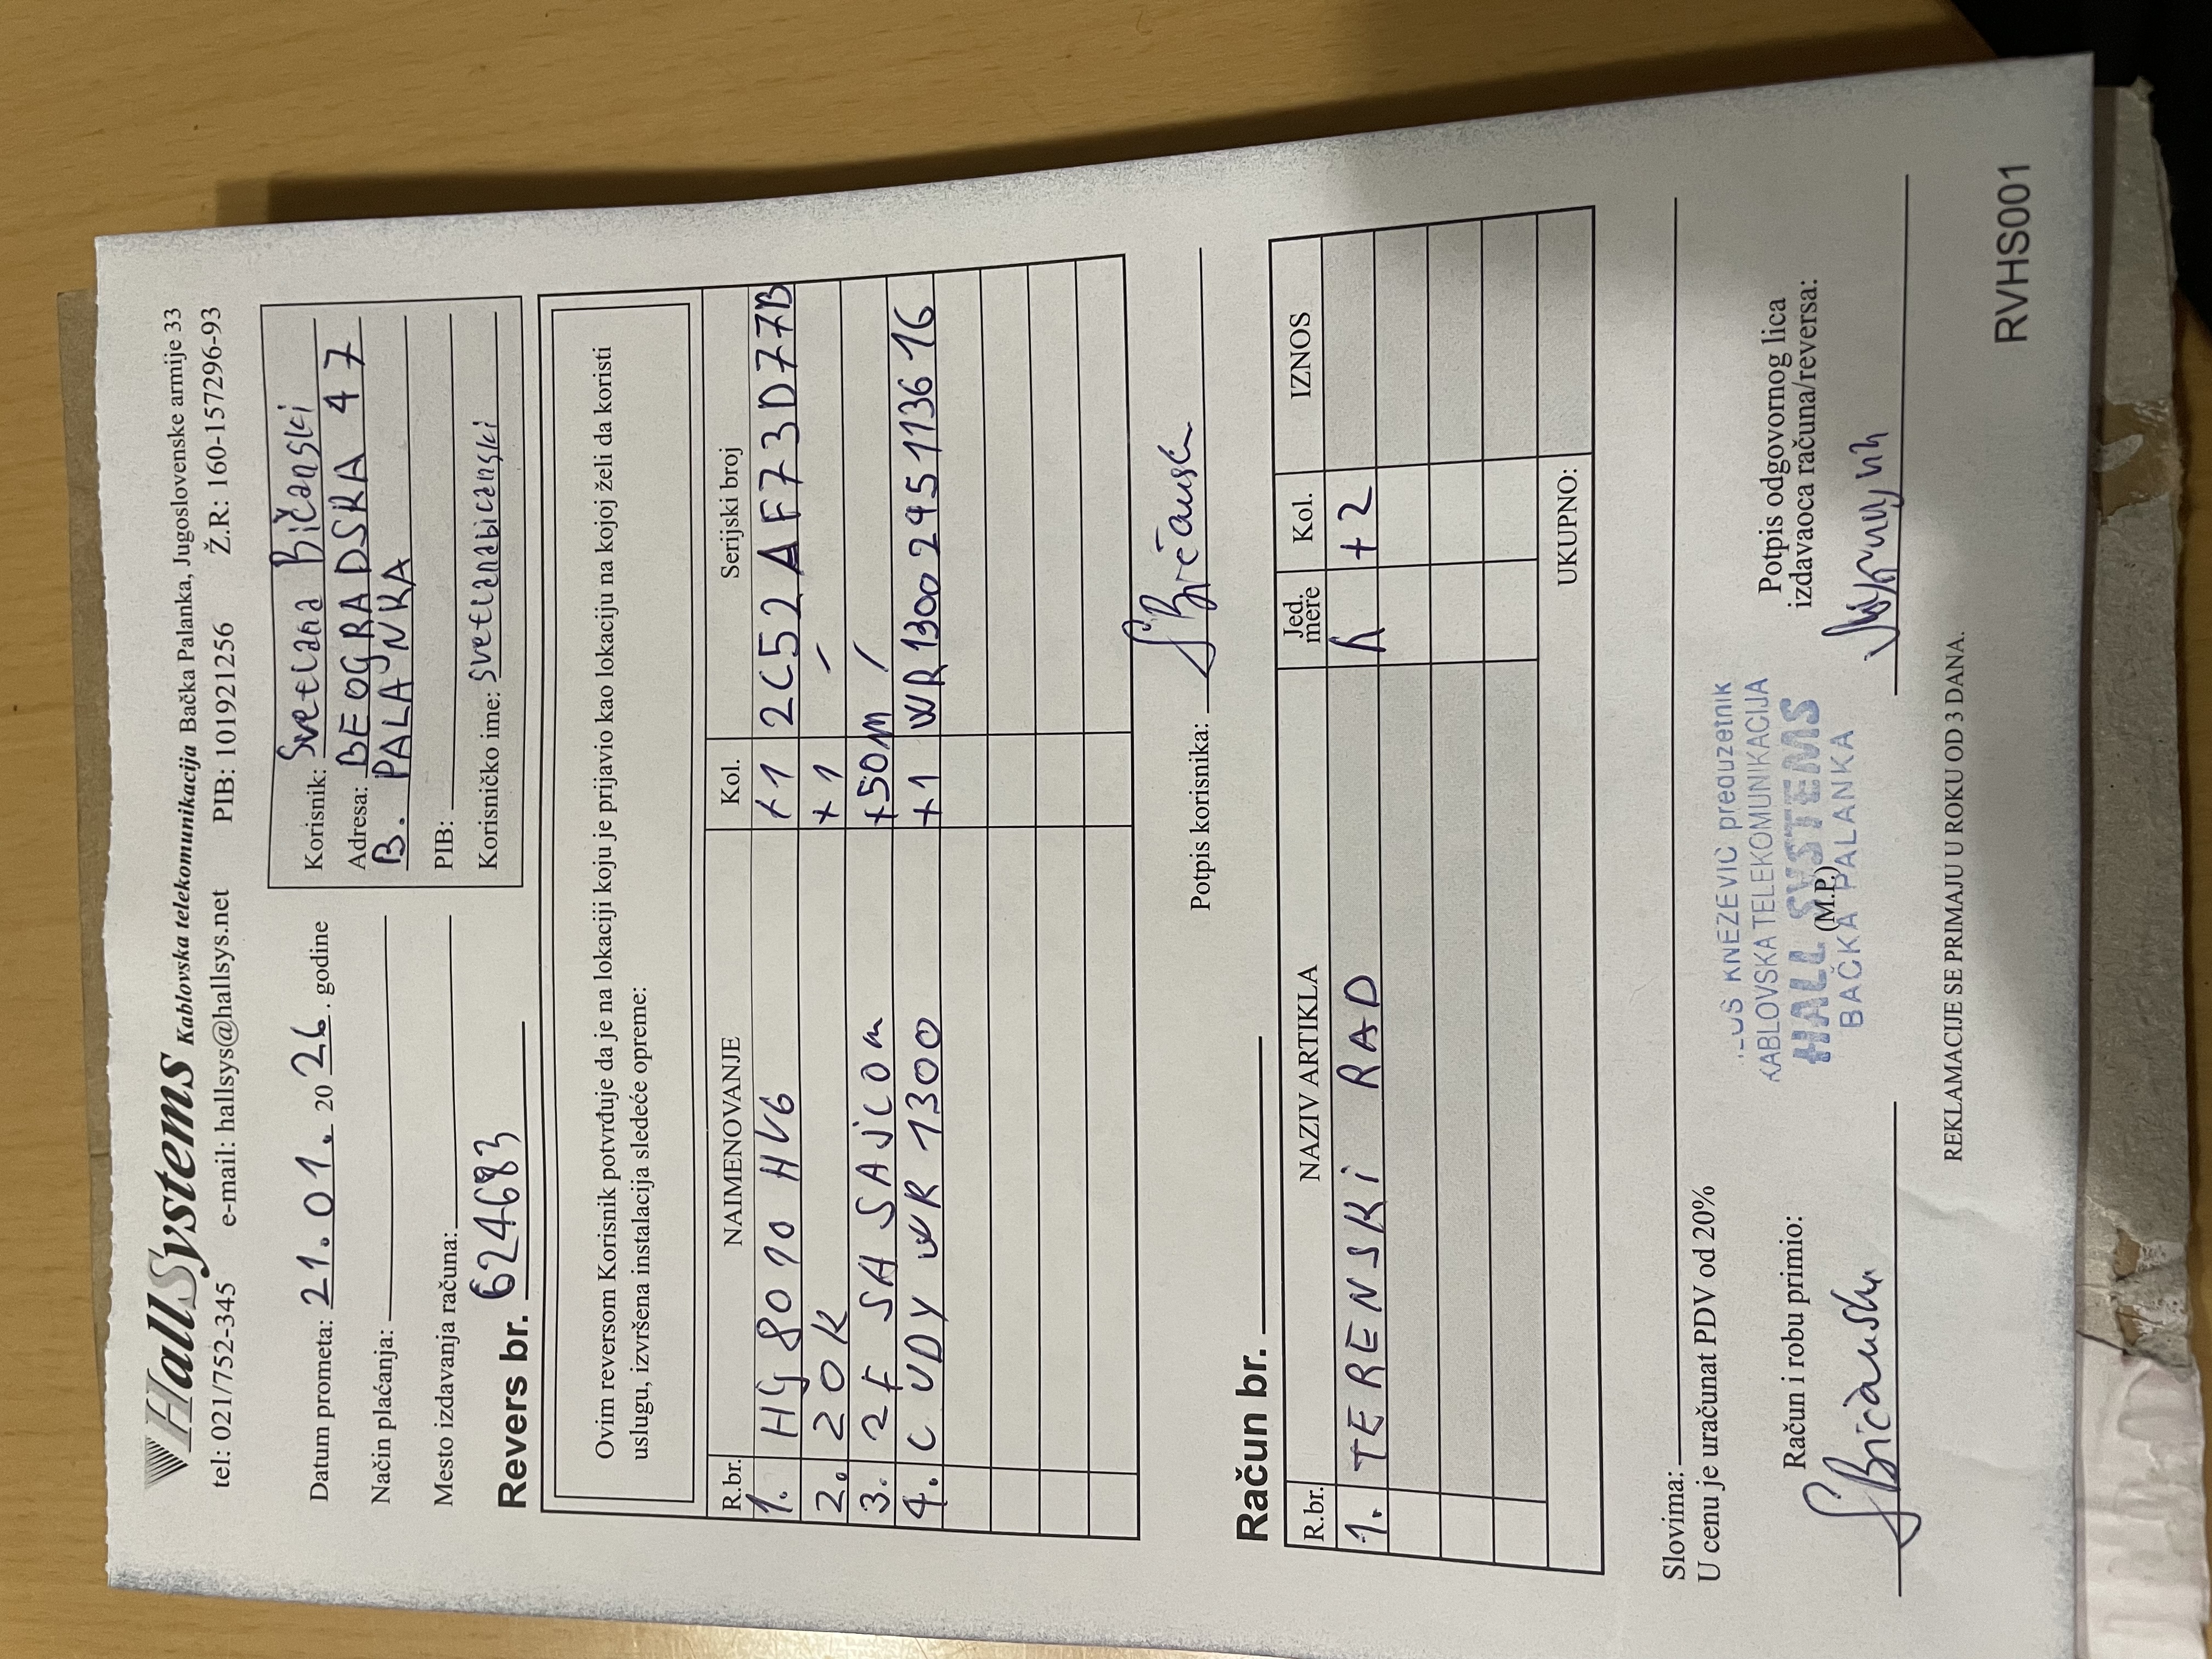 HallSystems Kablovska telekomunikacija Bačka Palanka, Jugoslovenske armije 33
tel: 021/752-345 e-mail: hallsys@hallsys.net PIB: 101921256 Ž.R.: 160-157296-93
Datum prometa: 21.01. 2026. godine
Način plaćanja:
Mesto izdavanja računa:
Korisnik: Svetlana Bičanski
Adresa: BEOGRADSKA 47
B. PALANKA
PIB:
Korisničko ime: svetlanabicanski
Revers br. 624683
Ovim reversom Korisnik potvrđuje da je na lokaciji koju je prijavio kao lokaciju na kojoj želi da koristi
uslugu, izvršena instalacija sledeće opreme:
R.br. NAIMENOVANJE Kol. Serijski broj
1. HG 8010 HV6 +1 2C52AF73D77B
2. ZOK +1 /
3. 2F SA SAJLOM +50m /
4. CUDY WR 1300 +1 WR13002451113616
Potpis korisnika: SBičanski
Račun br.
R.br. NAZIV ARTIKLA Jed. mere Kol. IZNOS
1. TERENSKI RAD h +2
UKUPNO:
Slovima:
U cenu je uračunat PDV od 20%
Račun i robu primio:
SBičanski
KNEZEVIC preduzetnik
KABLOVSKA TELEKOMUNIKACIJA
HALL SYSTEMS
(M.P.)
BAČKA PALANKA
Potpis odgovornog lica
izdavaoca računa/reversa:
REKLAMACIJE SE PRIMAJU U ROKU OD 3 DANA.
RVHS001